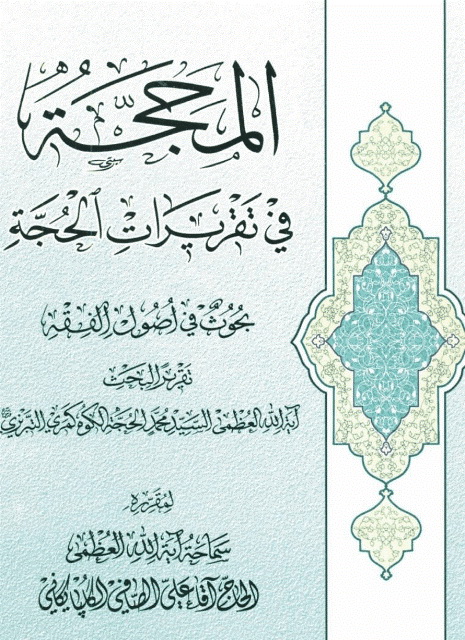 المَحَجَّة
في تَقْرِيرَاتِ الحُجَّةِ
بُحُوثٌ في أُصُولِ الفِقْهِ
تَقْرِيرُ البَحْثِ
آية الله العُظمى السيد محمد الحجة الكوه كمري التبريزي
لمُقَرِّرِهِ
سماحة آية الله العظمى
الحاج آقا علي الصافي الگلپايگاني